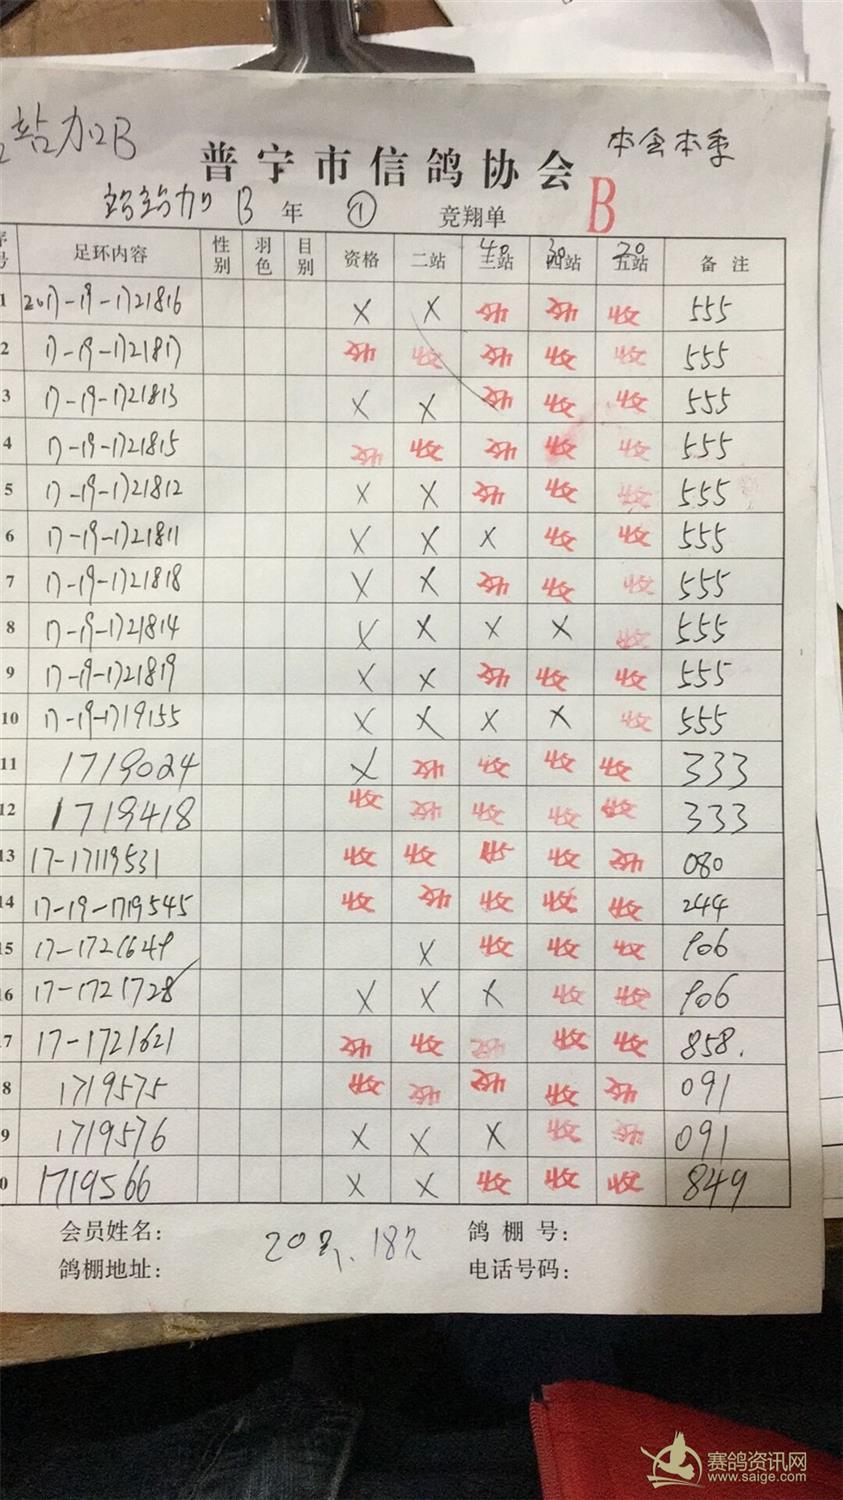 站加B
本会本季
普宁市信鸽协会
站站加 B 年 ① 竞翔单 B
号 足环内容 性别 羽色 目别 资格 二站 三站 40 四站 30 五站 20 备 注
1 2017-19-1721816 X X 收 收 收 555
2 17-19-1721817 收 收 收 收 收 555
3 17-19-1721813 X X 收 收 收 555
4 17-19-1721815 收 收 收 收 收 555
5 17-19-1721812 X X 收 收 收 555
6 17-19-1721811 X X X 收 收 555
7 17-19-1721818 X X 收 收 收 555
8 17-19-1721814 X X X X 收 555
9 17-19-1721819 X X 收 收 收 555
10 17-19-1719155 X X X X 收 555
11 1719024 X 收 收 收 收 333
12 1719418 收 收 收 收 收 333
13 17-17119531 收 收 收 收 收 080
14 17-19-1719545 收 收 收 收 收 244
15 17-1721649 X 收 收 收 906
16 17-1721728 X X X 收 收 906
7 17-1721621 收 收 收 收 收 858.
8 1719575 收 收 收 收 收 091
9 1719576 X X X 收 收 091
0 1719566 X X 收 收 收 849
会员姓名： 鸽 棚 号：
鸽棚地址： 电话号码：
赛鸽资讯网
www.saige.com